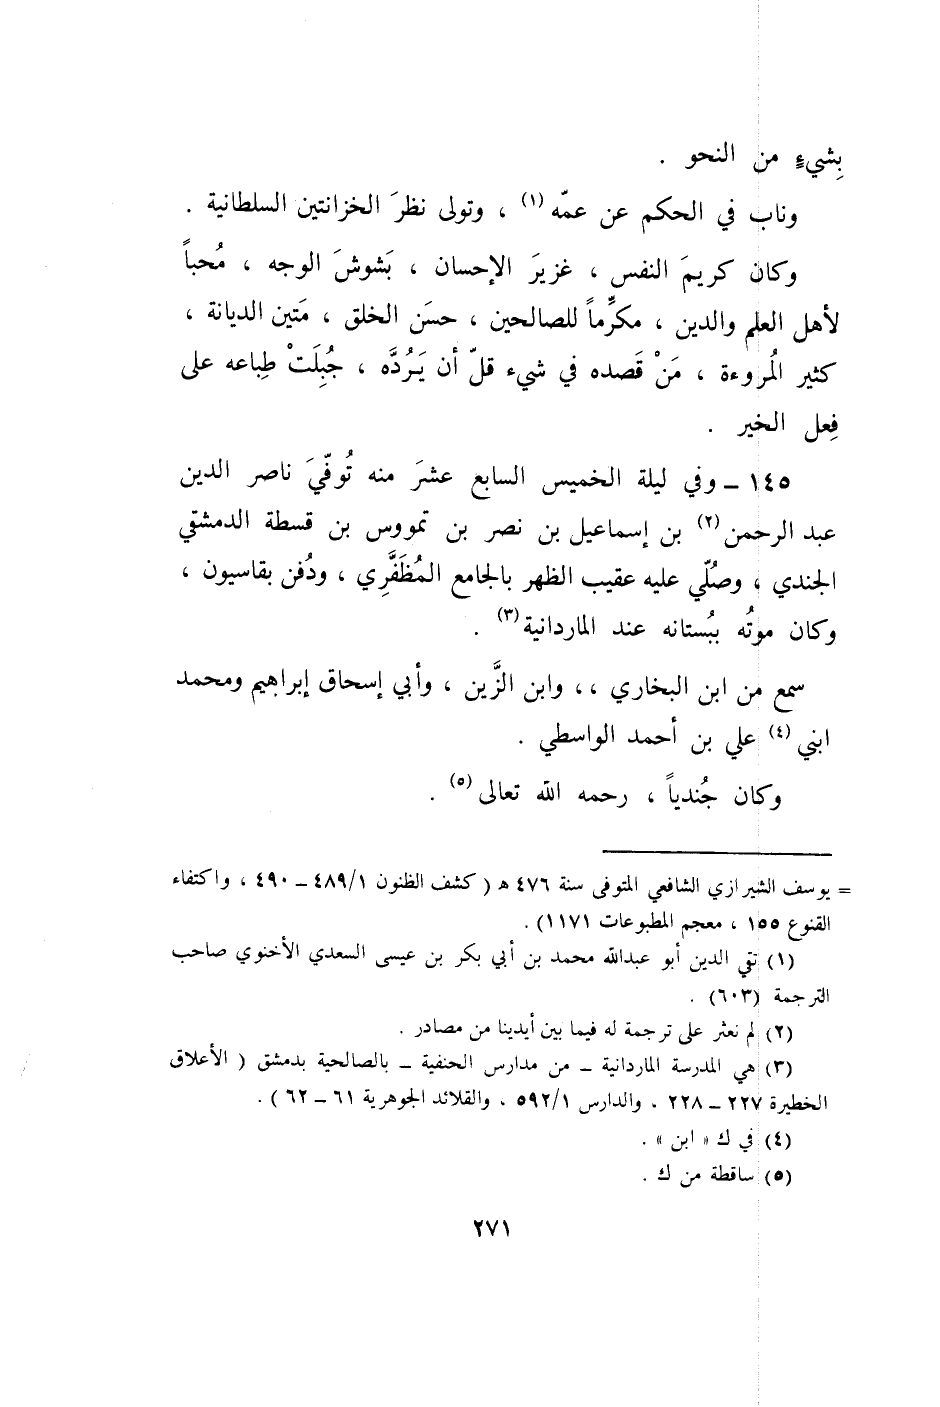 بِشيءٍ من النحو .
وناب في الحكم عن عمّه (١) ، وتولى نظرَ الخزانتين السلطانية .
وكان كريمَ النفس ، غزيرَ الإحسان ، بَشوشَ الوجه ، مُحباً
لأهل العلم والدين ، مكرِّماً للصالحين ، حسَن الخلق ، مَتين الديانة ،
كثير المُروءة ، مَنْ قَصده في شيء قلّ أن يَرُدَّه ، جُبِلَتْ طِباعه على
فِعل الخير .
١٤٥ ـ وفي ليلة الخميس السابع عشرَ منه تُوفّيَ ناصر الدين
عبد الرحمن (٢) بن إسماعيل بن نصر بن تمووس بن قسطة الدمشقي
الجندي ، وصُلّي عليه عقيب الظهر بالجامع المُظَفَّرِي ، ودُفن بقاسيون ،
وكان موتُه ببُستانه عند الماردانية (٣) .
سمع من ابن البخاري ،، وابن الزَّين ، وأبي إسحاق إبراهيم ومحمد
ابني (٤) علي بن أحمد الواسطي .
وكان جُندياً ، رحمه الله تعالى (٥) .
= يوسف الشيرازي الشافعي المتوفى سنة ٤٧٦ هـ ( كشف الظنون ٤٨٩/١ ـ ٤٩٠ ، واكتفاء
القنوع ١٥٥ ، معجم المطبوعات ١١٧١) .
(١) تقي الدين أبو عبدالله محمد بن أبي بكر بن عيسى السعدي الأخنوي صاحب
الترجمة (٦٠٣) .
(٢) لم نعثر على ترجمة له فيما بين أيدينا من مصادر .
(٣) هي المدرسة الماردانية ـ من مدارس الحنفية ـ بالصالحية بدمشق ( الأعلاق
الخطيرة ٢٢٧ ـ ٢٢٨ ، والدارس ٥٩٢/١ ، والقلائد الجوهرية ٦١ ـ ٦٢ ) .
(٤) في ك « ابن » .
(٥) ساقطة من ك .
٢٧١